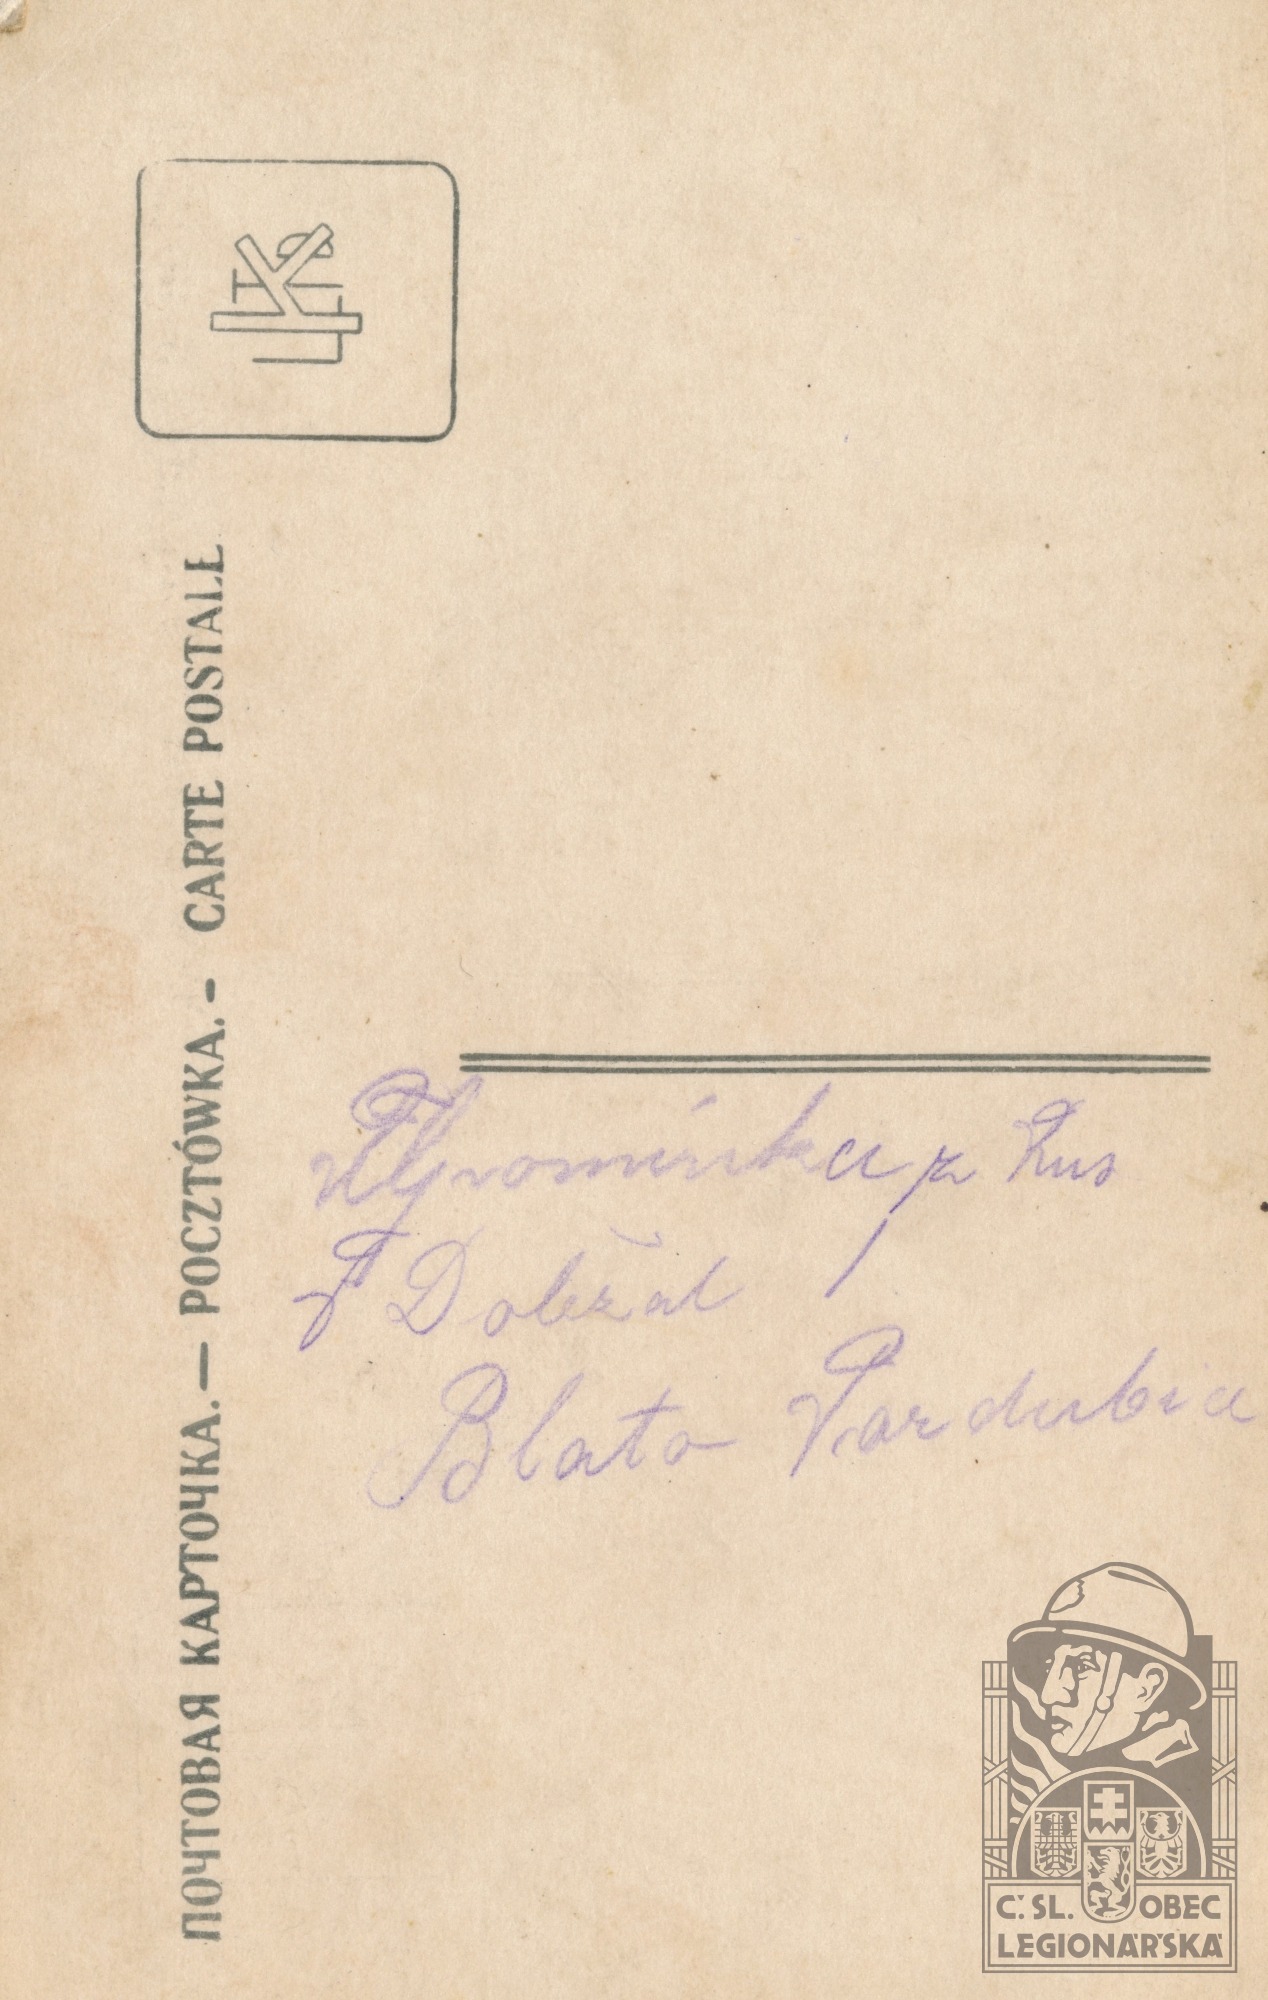 ПОЧТОВАЯ КАРТОЧКА.— POCZTÓWKA.- CARTE POSTALE
Wzpomínka z Rus
F Doležal
Blato Pardubice
Č. SL. OBEC
LEGIONÁŘSKÁ